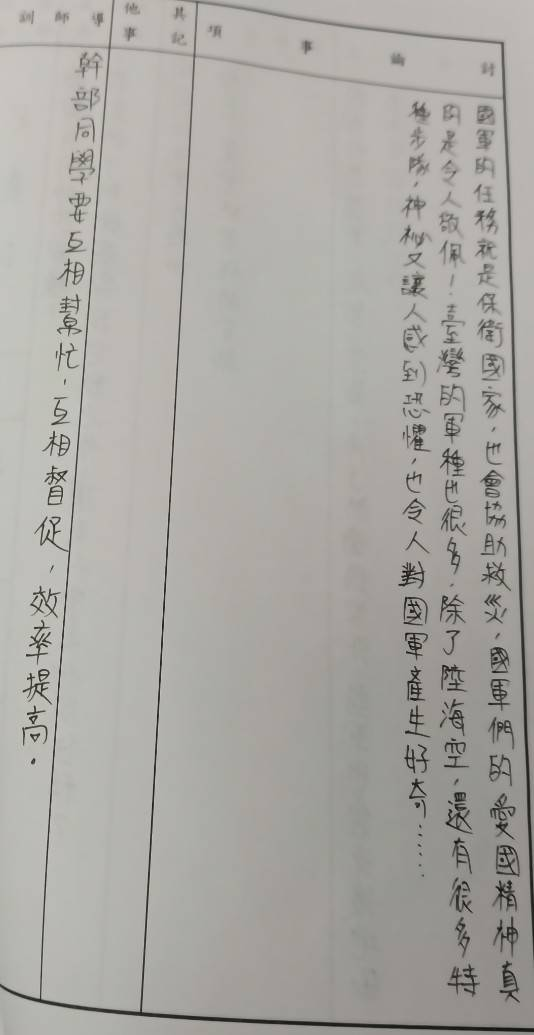 討論事項
國軍的任務就是保衛國家，也會協助救災，國軍們的愛國精神真
的是令人敬佩！臺灣的軍種也很多，除了陸海空，還有很多特
種步隊，神秘又讓人感到恐懼，也令人對國軍產生好奇……
其他記事
導師訓
幹部同學要互相幫忙，互相督促，效率提高。